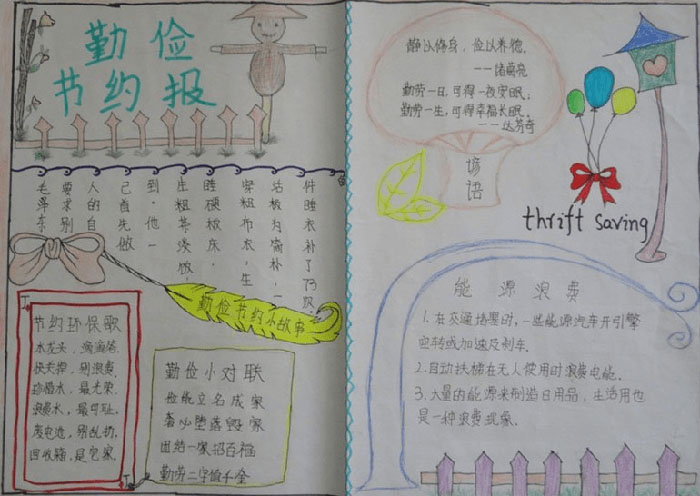 勤俭
节约报
毛泽东
要求别
人的自
己首先做
到。他一
粗茶淡饭,
睡硬板床,
穿粗布衣,生
活极为简朴,一
件睡衣补了73次
勤俭节约小故事
节约环保歌
水龙头,滴滴答,
快关掉,别浪费,
珍惜水,最光荣,
浪费水,最可耻,
废电池,别乱扔,
回收箱,是它家.
勤俭小对联
俭能立名成家
奢必堕落毁家
出结一家招百福
勤劳二字值千金
静以修身,俭以养德.
——诸葛亮
勤劳一日,可得一夜安眠;
勤劳一生,可得幸福长眠.
——达芬奇
谚语
thrift saving
能源浪费
1.在交通堵塞时,一些能源汽车开引擎
空转或加速及刹车.
2.自动扶梯在无人使用时浪费电能.
3.大量的能源来制造日用品,生活用也
是一种浪费现象.